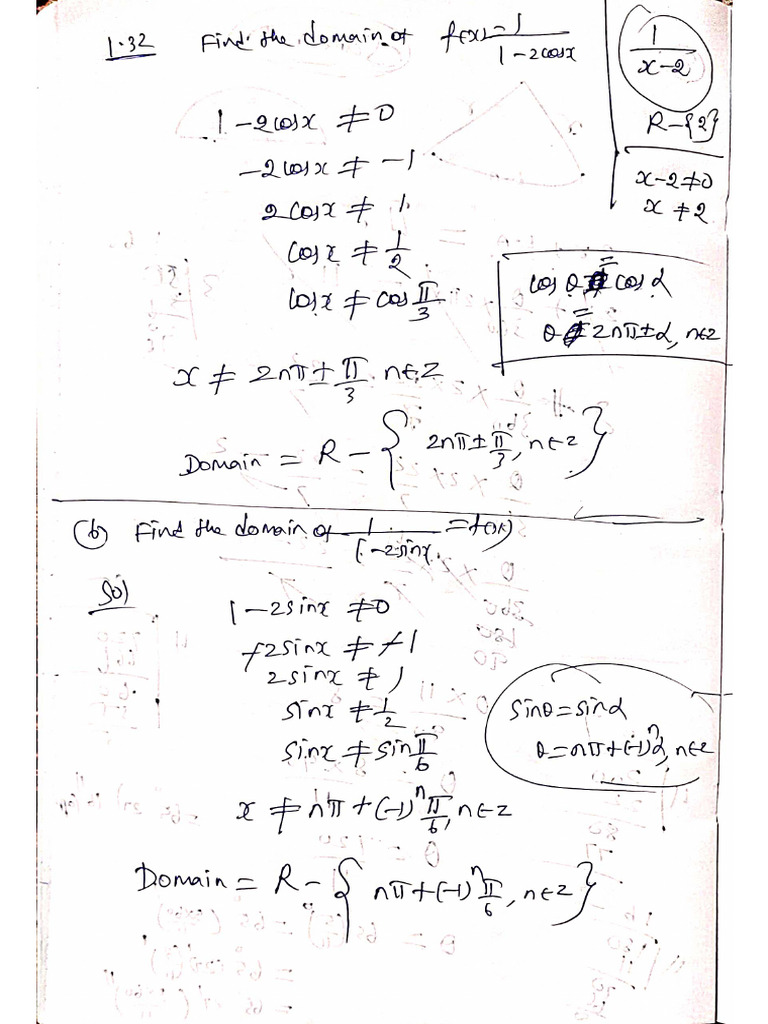 1.32 Find the domain of f(x) = 1/(1-2cosx)
1/(x-2)
R-{2}
x-2≠0
x≠2
1-2cosx ≠0
-2cosx ≠ -1
2cosx ≠ 1
cosx ≠ 1/2
cosx ≠ cos π/3
cos θ = cos α
θ = 2nπ±α, n∈z
x ≠ 2nπ ± π/3 n∈Z
Domain = R - { 2nπ±π/3, n∈z }
(b) Find the domain of 1/(1-2sinx) = f(x)
Sol
1-2sinx ≠0
-2sinx ≠ -1
2sinx ≠ 1
sinx ≠ 1/2
sinx ≠ sin π/6
sinθ=sinα
θ=nπ+(-1)ⁿα, n∈z
x ≠ nπ+(-1)ⁿ π/6, n∈z
Domain = R - { nπ+(-1)ⁿ π/6, n∈z }